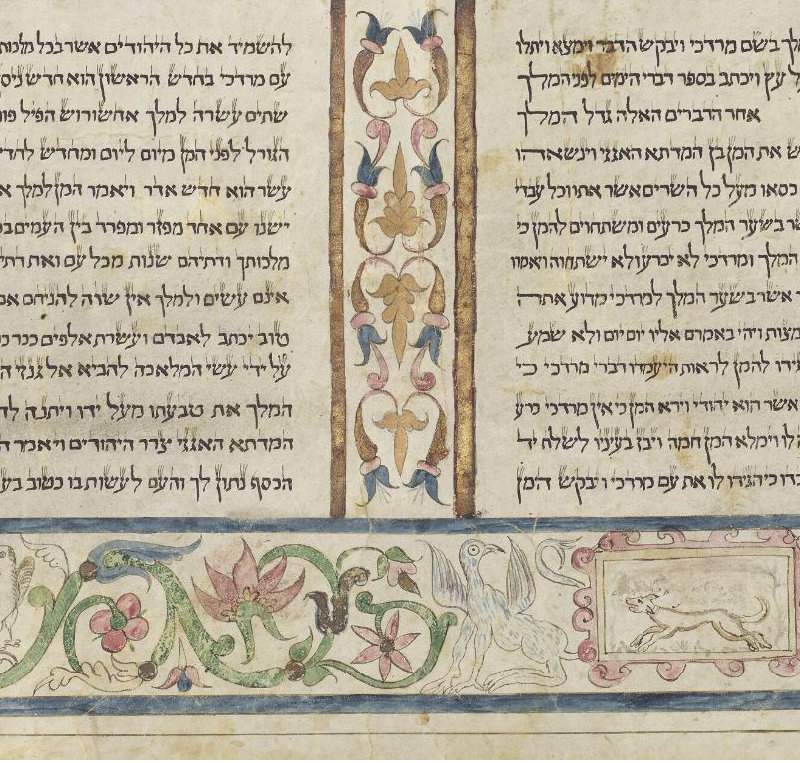 בשם מרדכי ויבקש הדבר וימצא ויתלו
עץ ויכתב בספר דברי הימים לפני המלך
אחר הדברים האלה גדל המלך
את המן בן המדתא האגגי וינשאהו
כסאו מעל כל השרים אשר אתו וכל עבדי
בשער המלך כרעים ומשתחוים להמן כי
המלך ומרדכי לא יכרע ולא ישתחוה ויאמרו
אשר בשער המלך למרדכי מדוע אתה
מצות ויהי באמרם אליו יום יום ולא שמע
להמן לראות היעמדו דברי מרדכי כי
אשר הוא יהודי וירא המן כי אין מרדכי כרע
לו וימלא המן חמה ויבז בעיניו לשלח יד
כי הגידו לו את עם מרדכי ויבקש המן
להשמיד את כל היהודים אשר בכל מלכות
עם מרדכי בחדש הראשון הוא חדש
שתים עשרה למלך אחשורוש הפיל
הגורל לפני המן מיום ליום ומחדש
עשר הוא חדש אדר ויאמר המן למלך
ישנו עם אחד מפזר ומפרד בין העמים
מלכותך ודתיהם שנות מכל עם ואת
אינם עשים ולמלך אין שוה להניחם אם
טוב יכתב לאבדם ועשרת אלפים ככר
על ידי עשי המלאכה להביא אל גנזי
המלך את טבעתו מעל ידו ויתנה
המדתא האגגי צרר היהודים ויאמר
הכסף נתון לך והעם לעשות בו כטוב